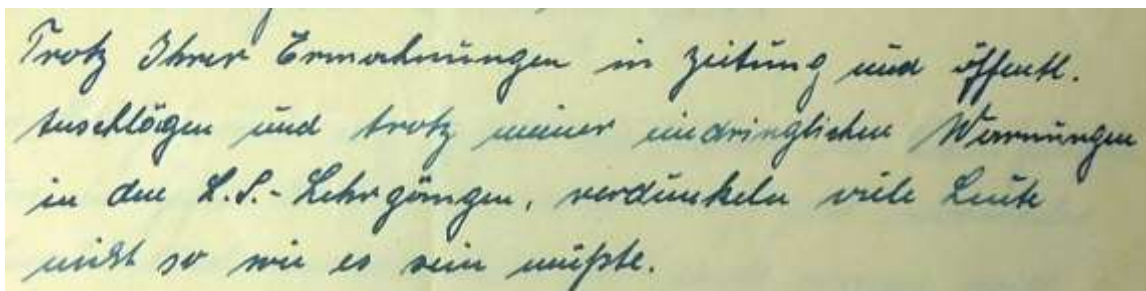 Trotz Ihrer Ermahnungen in Zeitung und öffentl.
Anschlägen und trotz meiner eindringlichen Warnungen
in den L.S.-Lehrgängen, verdunkeln viele Leute
nicht so wie es sein müßte.